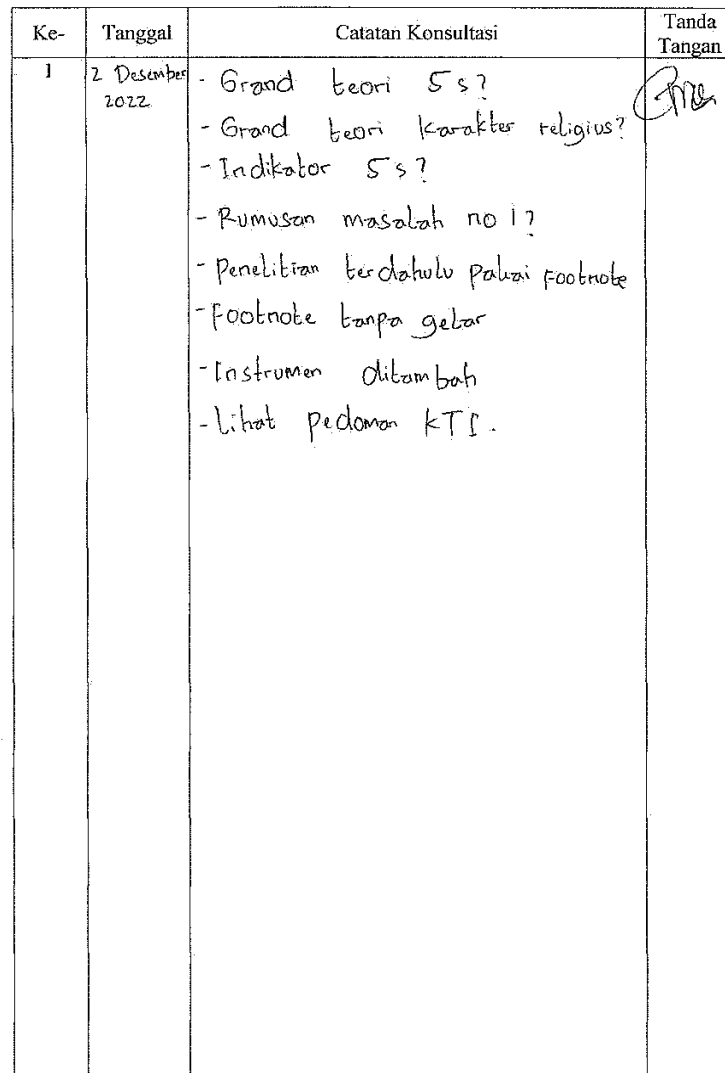 Ke- Tanggal Catatan Konsultasi Tanda Tangan
1 2 Desember 2022
- Grand teori 5 s?
- Grand teori karakter religius?
- Indikator 5 s?
- Rumusan masalah no 1?
- Penelitian terdahulu pakai footnote
- Footnote tanpa gelar
- Instrumen ditambah
- Lihat pedoman KTI.